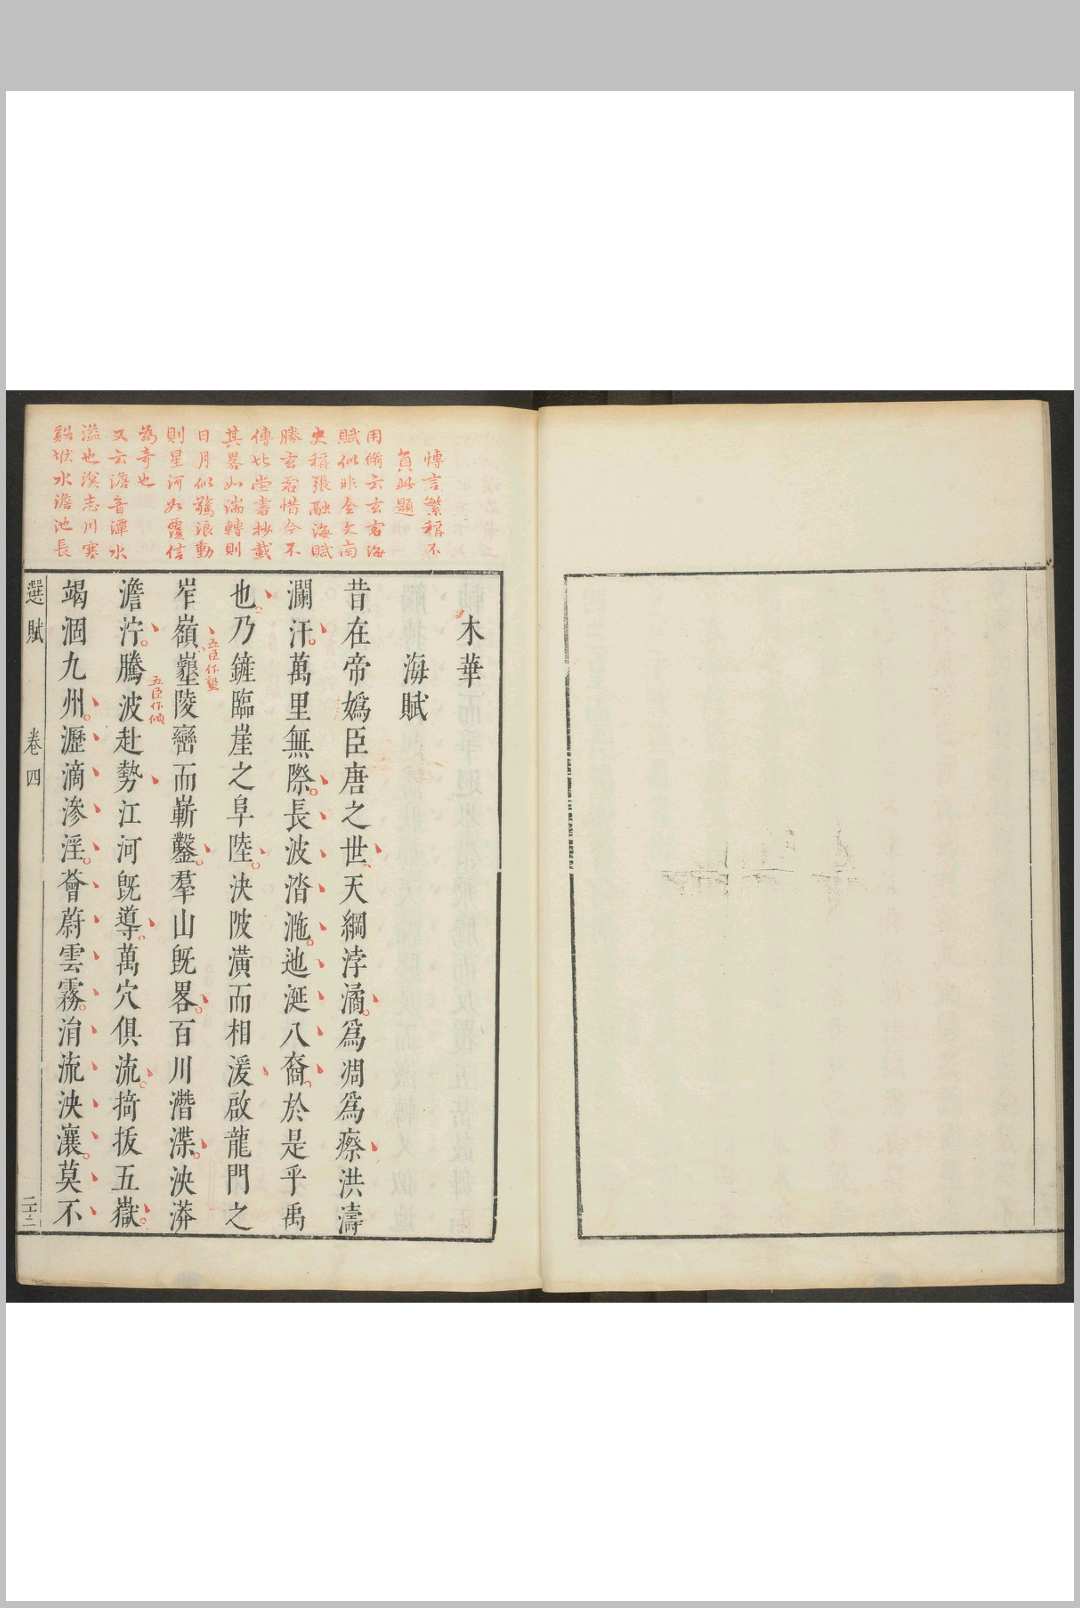 傅言繁稱不
負此題
用脩云玄虛海
賦似非全文南
史稱張融海賦
勝玄虛惜今不
傳北堂書抄載
其畧如湍轉則
日月似驚浪動
則星河如覆信
為奇也
又云澹音潭水
溢也漢志川塞
谿垘水澹池長
木華
海賦
昔在帝嬀臣唐之世天綱浡潏爲凋爲瘵洪濤
瀾汗萬里無際長波㳫𣶃迆涎八裔於是乎禹
也乃鏟臨崖之阜陸決陂潢而相湲啟龍門之
岝嶺墾陵巒而嶄鑿羣山旣畧百川潛渫泱漭
五臣作墾
澹泞騰波赴勢江河旣導萬穴俱流掎拔五嶽
五臣作傾
竭涸九州瀝滴滲淫薈蔚雲霧涓流泱瀼莫不
選賦
卷四
二十二